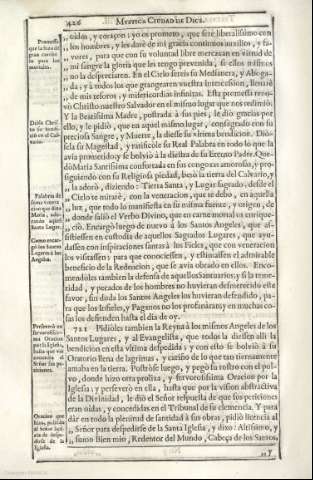 426 MYSTICA CIUDAD DE DIOS.
oidos, y coraçon; yo os prometo, que serè liberalissimo con
los hombres, y les darè de mi gracia continuos auxilios, y fa-
vores, para que con su voluntad libre merezcan en virtud de
mi sangre la gloria que les tengo prevenida, si ellos mismos
no la despreciaren. En el Cielo sereis su Medianera, y Aboga-
da; y à todos los que grangearen vuestra intercession, llenarè
de mis tesoros, y misericordias infinitas. Esta promessa reno-
vò Christo nuestro Salvador en el mismo lugar que nos redimiò.
Y la Beatissima Madre, postrada à sus pies, le diò gracias por
ello, y le pidiò, que en aquel mismo lugar, consagrado con su
preciosa Sangre, y Muerte, la diesse su vltima bendicion. Diò-
sela su Magestad, y ratificòle su Real Palabra en todo lo que la
avia prometido; y se bolviò à la diestra de su Eterno Padre. Que-
dò Maria Santissima confortada en sus congojas amorosas, y pro-
siguiendo con su Religiosa piedad, besò la tierra del Calvario, y
la adorò, diziendo: Tierra Santa, y Lugar sagrado, desde el
Cielo te mirarè, con la veneracion, que te debo, en aquella
luz, que todo lo manifiesta en su misma fuente, y origen, de
donde saliò el Verbo Divino, que en carne mortal os enrique-
ciò. Encargò luego de nuevo à los Santos Angeles, que as-
sistiessen en custodia de aquellos Sagrados Lugares, que ayu-
dassen con inspiraciones santas à los Fieles, que con veneracion
los visitassen; para que conociessen, y estimassen el admirable
beneficio de la Redencion, que se avia obrado en ellos. Enco-
mendòles tambien la defensa de aquellos Santuarios; y si la teme-
ridad, y pecados de los hombres no huvieran desmerecido este
favor, sin duda los Santos Angeles los huvieran defendido, pa-
ra que los Infieles, y Paganos no los profanàran; y en muchas co-
sas los defienden hasta el dia de oy.
721 Pidiòles tambien la Reyna à los mismos Angeles de los
Santos Lugares, y al Evangelista, que todos la diessen alli la
bendicion en esta vltima despedida; y con esto se bolviò à su
Oratorio llena de lagrimas, y cariño de lo que tan tiernamente
amaba en la tierra. Postròse luego, y pegò su rostro con el pol-
vo, donde hizo otra prolixa, y fervorosissima Oracion por la
Iglesia; y perseverò en ella, hasta que por la vision abstractiva
de la Divinidad, le diò el Señor respuesta de que sus peticiones
eran oidas, y concedidas en el Tribunal de su clemencia. Y para
dàr en todo la plenitud de santidad à sus obras, pidiò licencia al
Señor para despedirse de la Santa Iglesia, y dixo: Altissimo, y
sumo Bien mio, Redentor del Mundo, Cabeça de los Santos,
Y